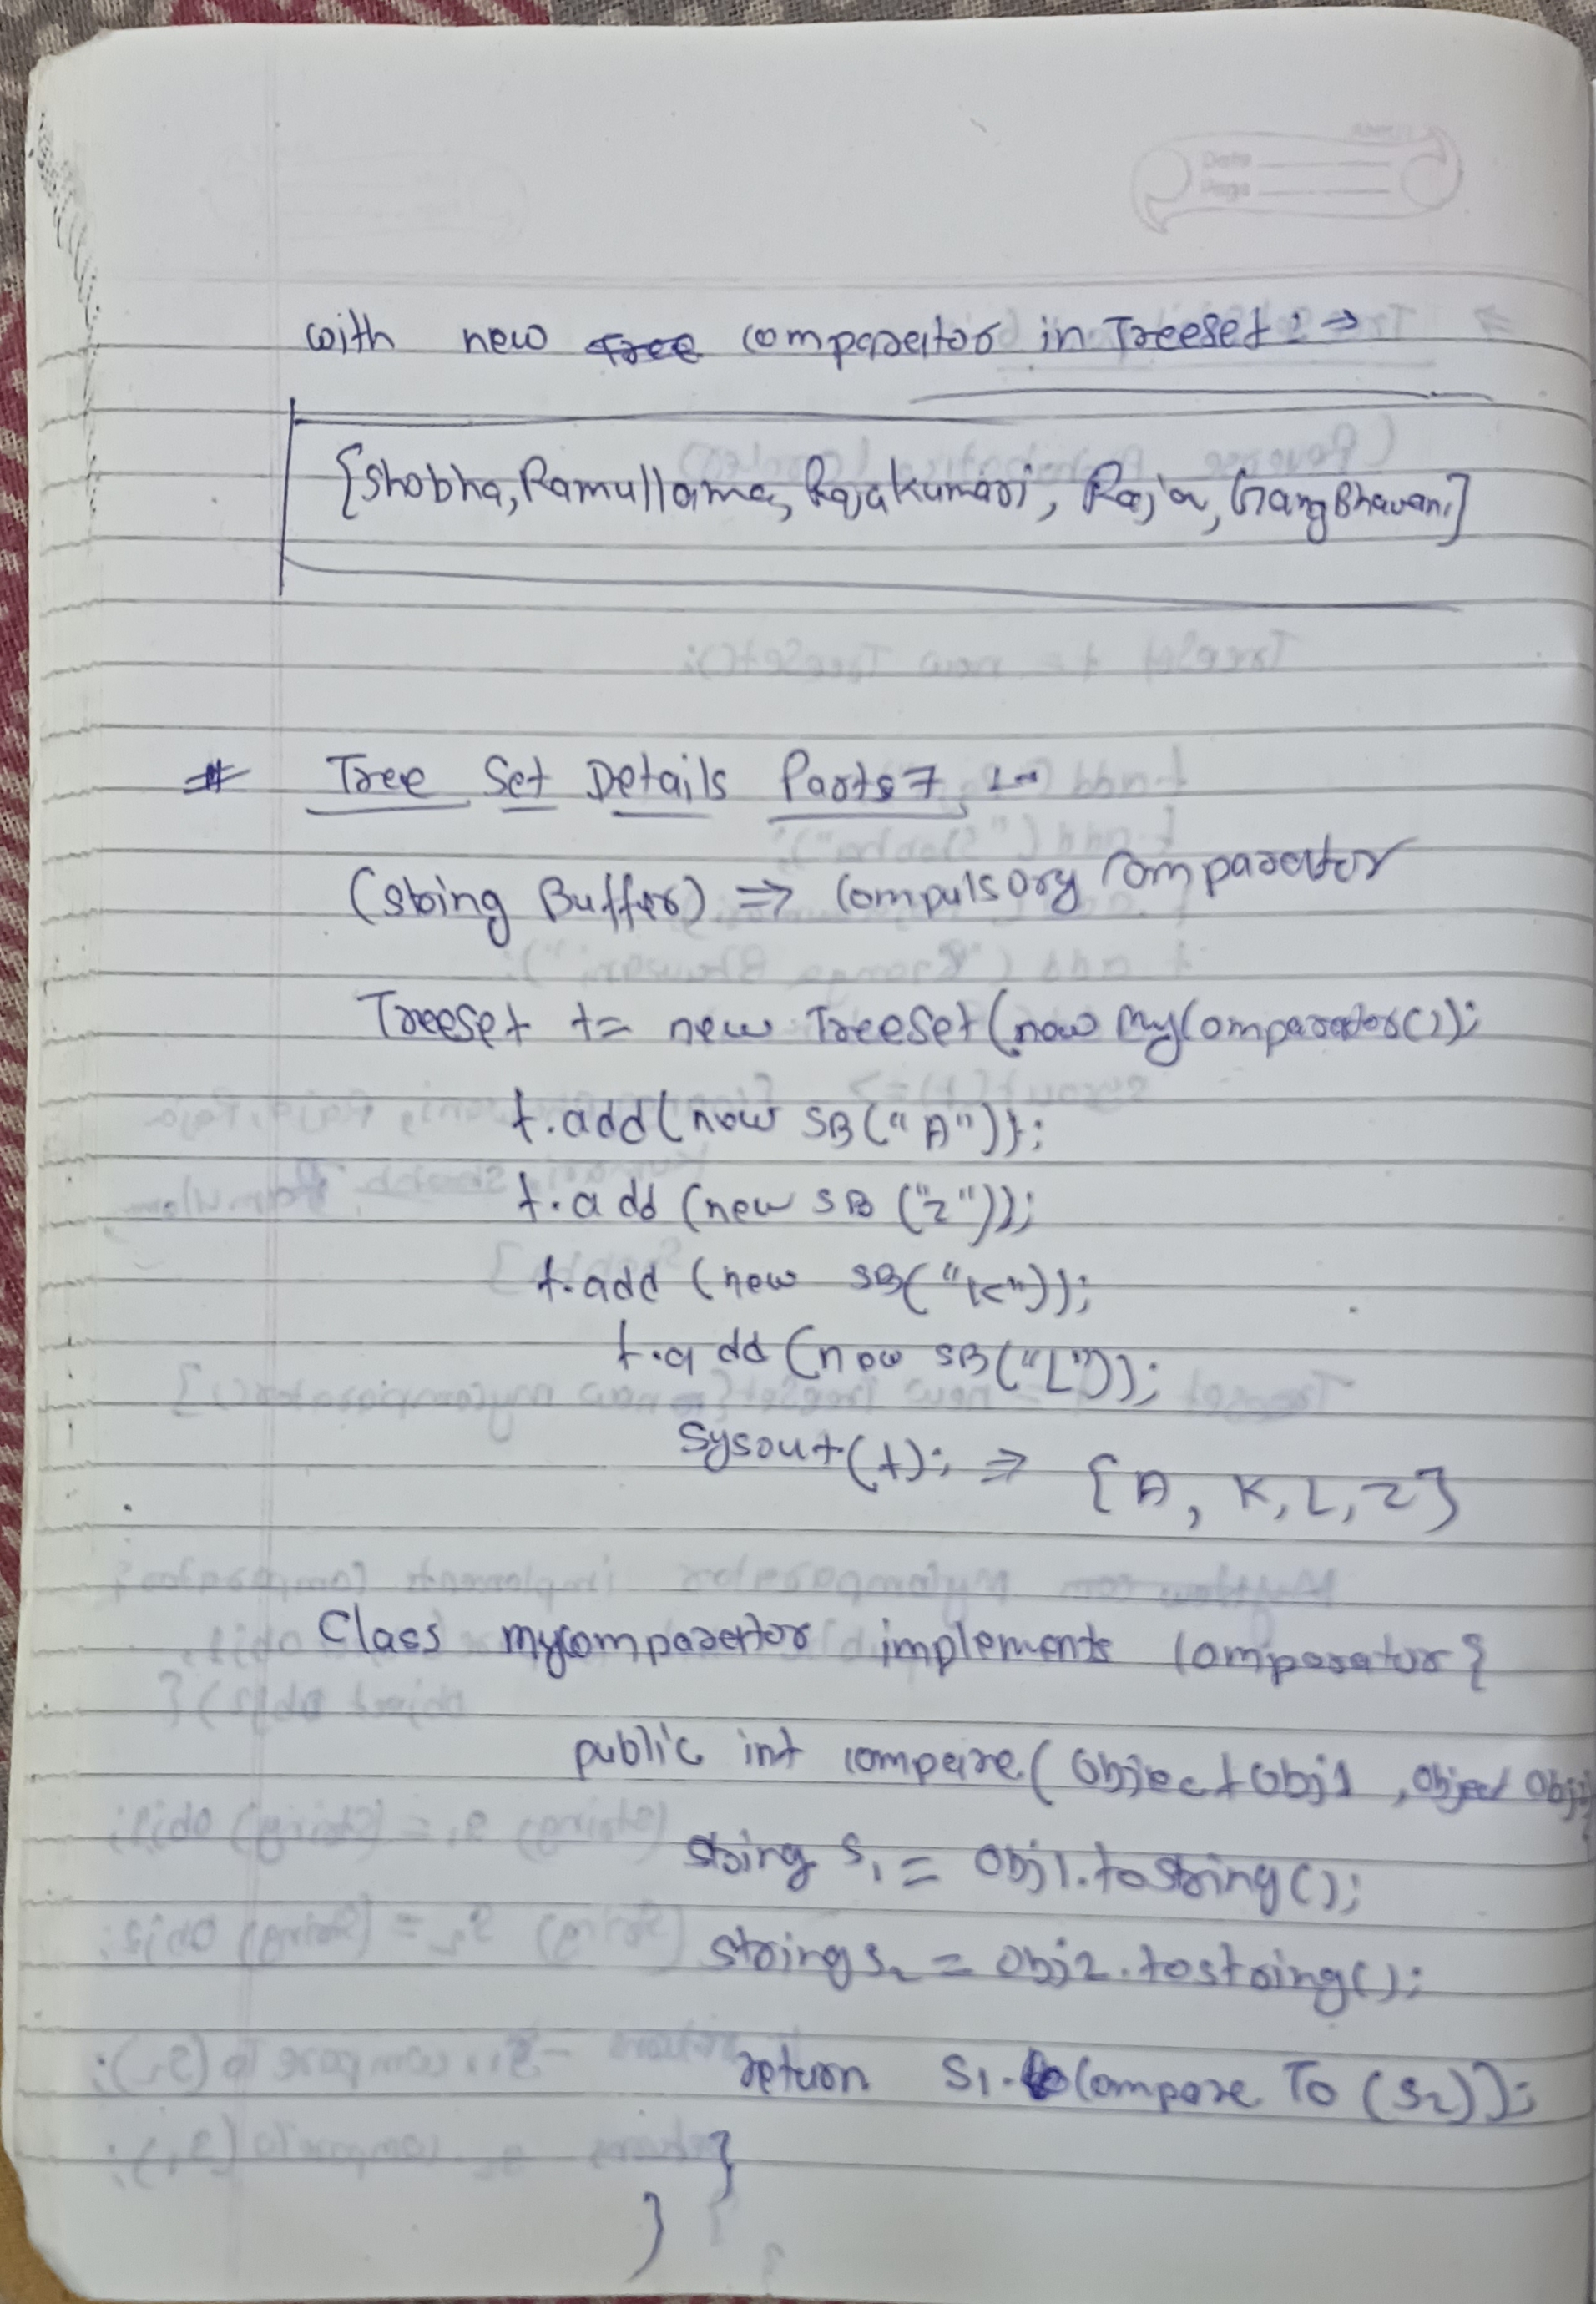 Date
Page
with new Tree comparator in TreeSet :- ⇒
{Shobha, Ramullama, Rajakumari, Raja, GangBhavani}
# Tree Set Details Parts 7 :-
(String Buffer) ⇒ Compulsory Comparator
TreeSet t= new TreeSet(new MyComparator());
t.add(new SB("A"));
t.add (new SB ("Z"));
t.add (new SB("K"));
t.add (new SB("L"));
Sysout(t); ⇒ {A, K, L, Z}
Class mycomparator implements Comparator{
public int compare(Object Obj1, Object Obj2){
String S1 = Obj1.toString();
String S2 = Obj2.toString();
return S1.CompareTo(S2));
}
}